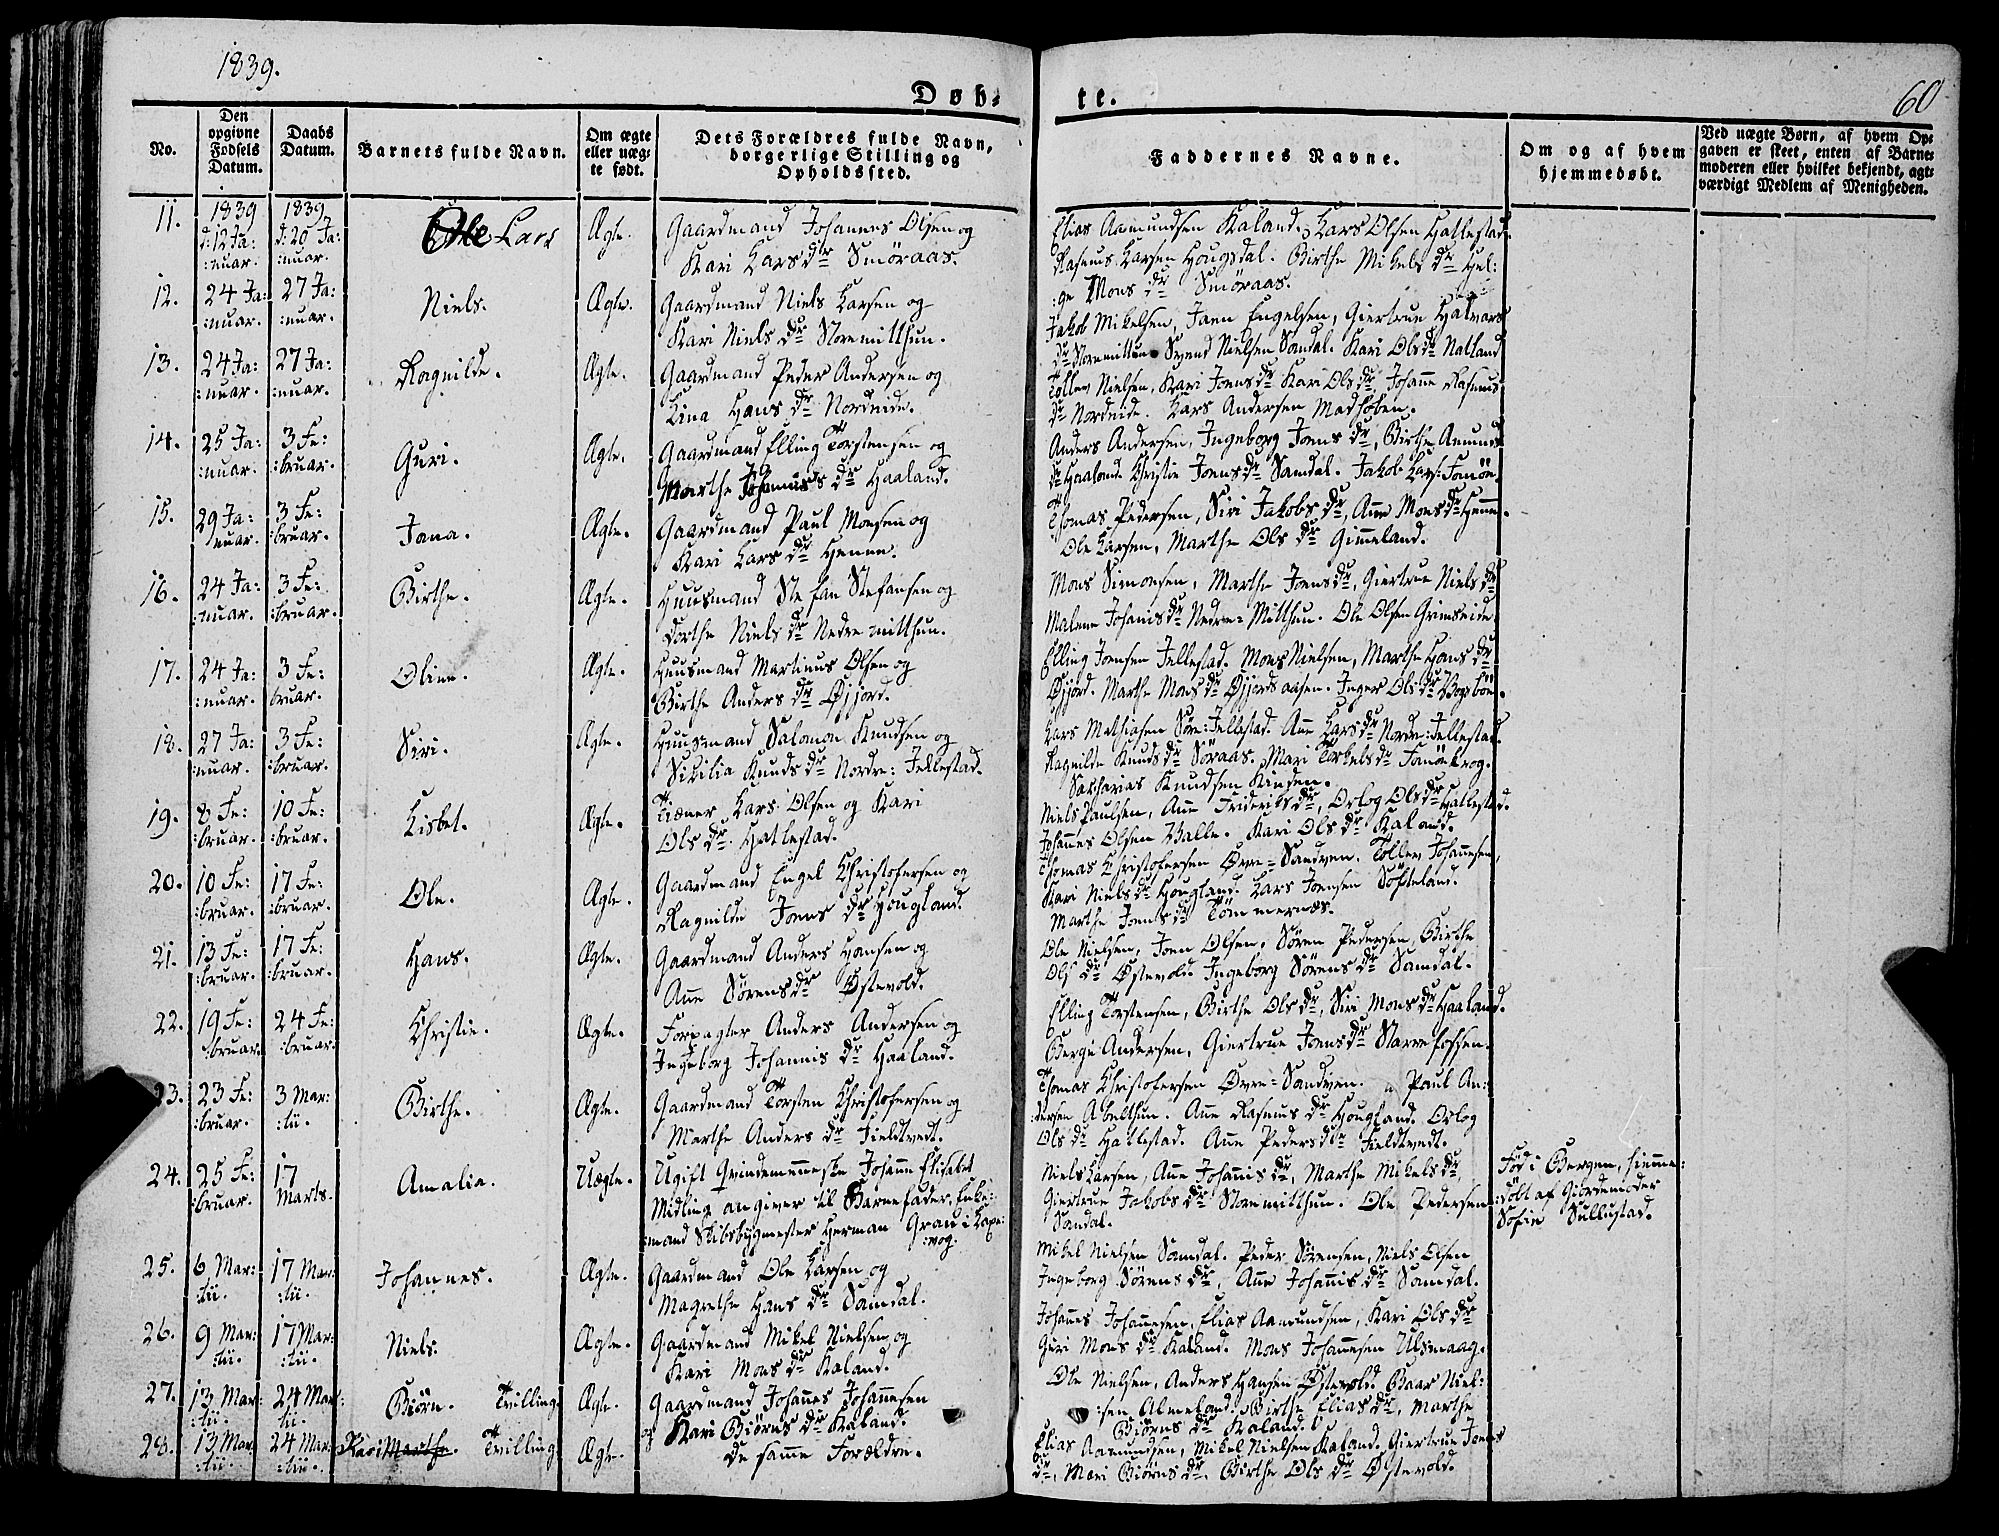 1839.
Døb-
te.
60
No.
Den opgivne Fødsels Datum.
Daabs Datum.
Barnets fulde Navn.
Om ægte eller uægte født.
Dets Forældres fulde Navn, borgerlige Stilling og Opholdssted.
Faddernes Navne.
Om og af hvem hjemmedøbt.
Ved uægte Børn, af hvem Opgaven er skeet, enten af Barnemoderen eller hvilket bekjendt, agtværdigt Medlem af Menigheden.
11. 1839 d: 12 Ja::nuar. 1839 d: 20 Ja::nuar. Ole Lars Ægte.
Gaardmand Johannes Olsen og
Kari Lars dr Smøraas.
Elias Aamundsen Kaland. Lars Olsen Hatlestad.
Rasmus Larsen Hougsdal. Birthe Mikels dr Hel:
:ge Mons dr Smøraas.
12. 24 Ja::nuar. 27 Ja::nuar. Niels. Ægte.
Gaardmand Niels Larsen og
Kari Niels dr Storemitthun.
Jakob Mikelsen, Joen Engelsen, Giertrue Halvors
dr Storemitthun. Svend Nielsen Samdal. Kari Ols dr Natland
13. 24 Ja::nuar. 27 Ja::nuar. Ragnilde. Ægte.
Gaardmand Peder Andersen og
Lina Hans dr Nordeide.
Tollev Nielsen, Kari Joens dr Kari Ols dr, Johanne Rasmus
dr Nordeide. Lars Andersen Madhoben.
14. 25 Ja::nuar. 3 Fe::bruar. Guri. Ægte.
Gaardmand Elling Torstensen og
Marthe Johannis dr Haaland.
Anders Andersen, Ingeborg Joens dr, Birthe Amunds
dr Haaland Christie Joens dr Samdal. Jakob Lars:
15. 29 Ja:nuar. 3 Fe::bruar. Jana. Ægte.
Gaardmand Paul Monsen og
Kari Lars dr Henne.
Thomas Pedersen, Siri Jakobs dr, Anne Mons dr Henne.
Ole Larsen, Marthe Ols dr Gimmeland.
16. 24 Ja::nuar. 3 Fe::bruar. Birthe. Ægte.
Huusmand Stefan Stefansen og
Dorthe Niels dr Nedre mitthun.
Mons Simonsen, Marthe Joens dr, Giertrue Niels dr
Malene Johanis dr Nedre-Mitthun. Ole Olsen Grimseide
17. 24 Ja::nuar. 3 Fe:bruar. Oline. Ægte.
Huusmand Martinus Olsen og
Birthe Anders dr Øjjord.
Elling Joensen Jellestad. Mons Nielsen, Marthe Hans dr
Øjjord. Marthe Mons dr Øjjordsaasen. Inger Ols dr
18. 27 Ja::nuar. 3 Fe::bruar. Siri. Ægte.
Huusmand Salomon Knudsen og
Sisilia Knuds dr Nordre: Jellestad.
Lars Mathiasen Søre:Jellestad. Anne Lars dr Nordre:Jellestad.
Ragnilde Knuds dr Søraas. Mari Torkels dr
Sakharias Knudsen
19. 8 Fe::bruar. 10 Fe::bruar. Lisbet. Ægte.
Tiæner Lars Olsen og Kari
Ols dr. Hatlestad.
Niels Paulsen, Anne Frideriks dr, Orlog Ols dr Hatlestad.
Johannes Olsen Valle. Kari Ols dr Kaland.
20. 10 Fe::bruar. 17 Fe::bruar. Ole. Ægte.
Gaardmand Engel Christofersen og
Ragnilde Joens dr Hougland.
Thomas Christofersen Øvre-Sandven. Tollev Johannesen,
Kari Niels dr Hougland. Lars Joensen Søfteland.
Marthe Joens dr Tømmernæs.
21. 13 Fe::bruar. 17 Fe::bruar. Hans. Ægte.
Gaardmand Anders Hansen og
Anne Sørens dr Østevold.
Ole Nielsen, Joen Olsen, Søren Pedersen, Birthe
Ols dr Østevold. Ingeborg Sørens dr Samdal.
22. 19 Fe::bruar. 24 Fe::bruar. Christie. Ægte.
Forpagter Anders Andersen og
Ingeborg Johannis dr Haaland.
Elling Torstensen, Birthe Ols dr, Siri Mons dr Haaland.
Berge Andersen, Giertrue Joens dr Starrefossen.
23. 23 Fe::bruar. 3 Mar::tii. Birthe. Ægte.
Gaardmand Torsten Christofersen og
Marthe Anders dr Fieldtvedt.
Thomas Christofersen Øvre-Sandven. Paul An:
:dersen Abelthun. Anne Rasmus dr Hougland. Orlog
Ols dr Hatlestad. Anne Peders dtr Fieldtvedt.
24. 25 Fe::bruar. 17 Marts. Amalia. Uægte.
Ugift Qvindemenneske Johanne Elisabet
Midling angiver til Barnefader, Enke:
:mand Skibsbygmester Herman Gran i Laxe:
:vog.
Niels Larsen, Anne Johannis dr, Marthe Mikels dr,
Giertrue Jakobs dr Storemitthun. Ole Pedersen
Samdal.
Født i Bergen, hiemme:
:døbt af Giordemoder
Sofie Sullustad.
25. 6 Mar::tii. 17 Mar::tii. Johannes. Ægte.
Gaardmand Ole Larsen og
Magrethe Hans dr Samdal.
Mikel Nielsen Samdal. Peder Sørensen, Niels Olsen
Ingeborg Sørens dr, Anne Johannis dr Samdal.
26. 9 Mar::tii. 17 Mar::tii. Niels. Ægte.
Gaardmand Mikel Nielsen og
Kari Mons dr Kaland.
Johannes Johannesen, Elias Aamundsen, Kari Ols dr
Guri Mons dr Kaland. Mons Johannesen Ulsmaag.
27. 13 Mar::tii. 24 Mar:tii. Biørn. Tvilling. Ægte.
Gaardmand Johannes Johannesen
og Kari Biørns dr Kaland.
Ole Nielsen, Anders Hansen Østevold. Baar Niel:
:sen Almeland. Birthe Elias dr, Marthe
Biørns dr Kaland.
28. 13 Mar:tii. 24 Mar::tii. Kari Marthe. Tvilling Ægte.
De samme Forældre.
Elias Aamundsen, Mikel Nielsen Kaland. Giertrue Joens
dr, Mari Biørns dr, Birthe Ols dr Østevold.